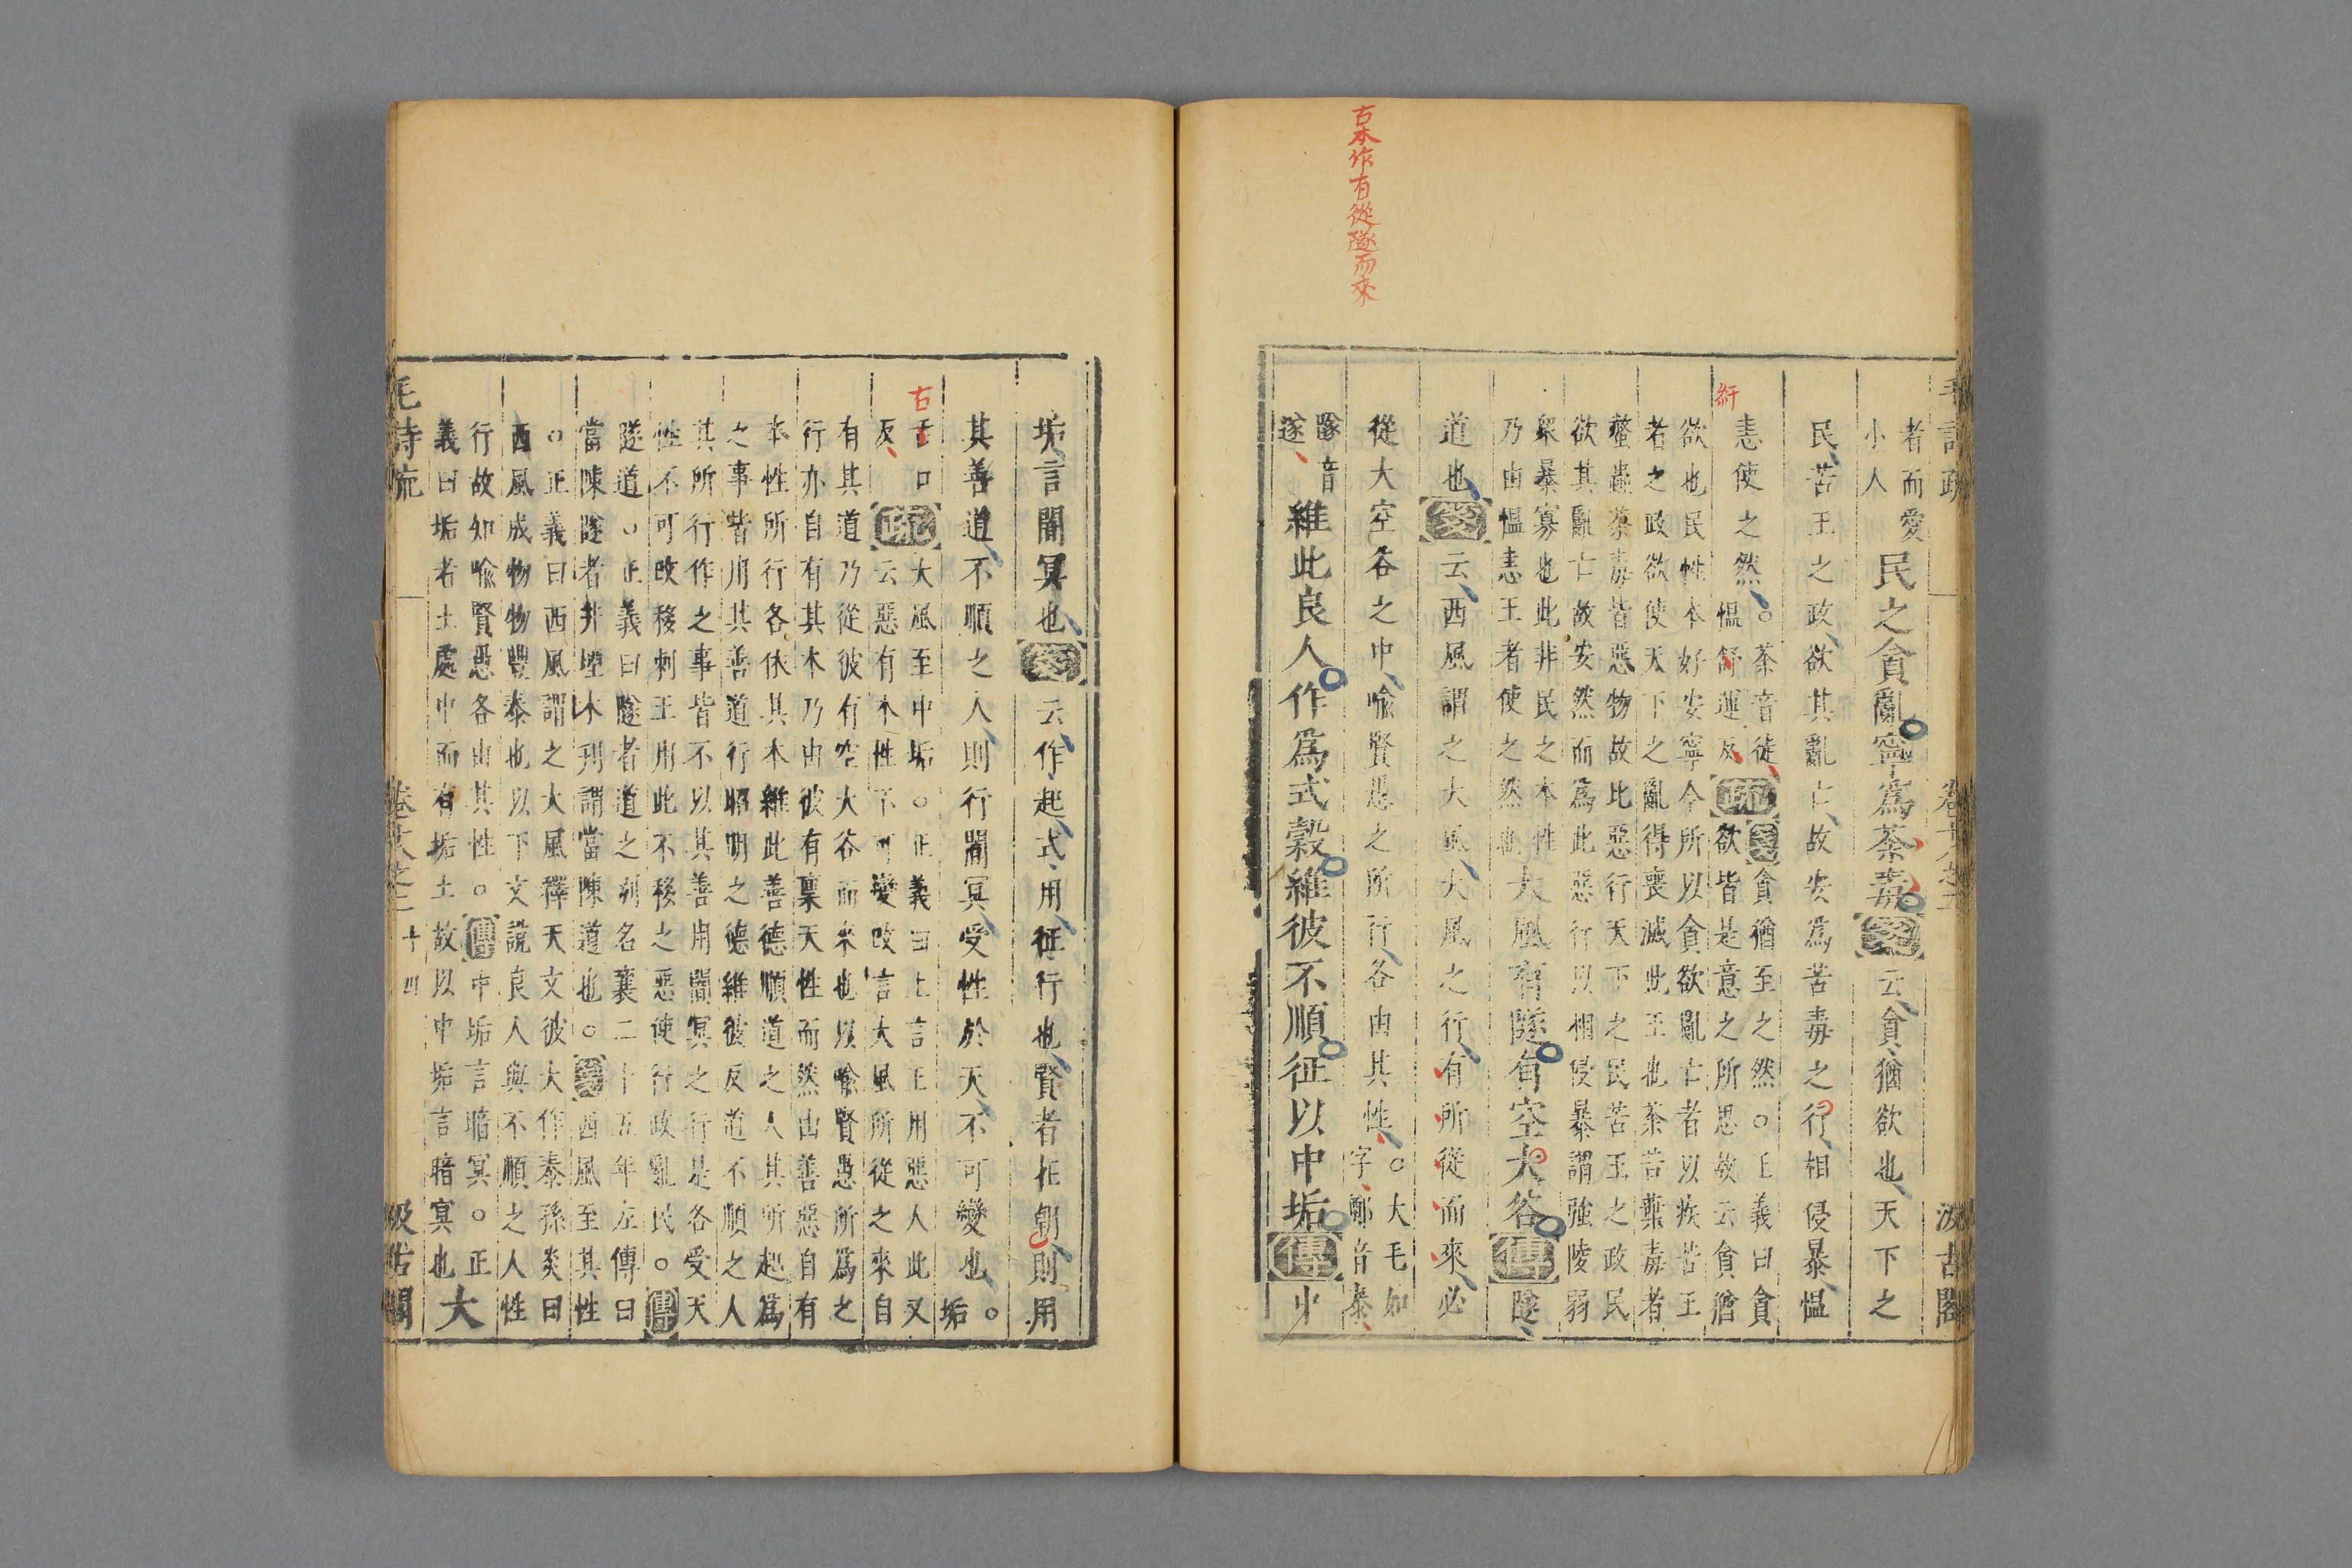 古本作有從隧而來
毛詩疏
汲古閣
者而愛
小人
民之貪亂寧爲荼毒箋云貪猶欲也天下之
民苦王之政欲其亂亡故安爲苦毒之行相侵暴慍
恚使之然
○荼音徒
慍紆運反
紆
疏箋貪猶至之然○正義曰貪
欲皆是意之所思故云貪猶
欲也民性本好安寧今所以貪欲亂亡者以疾苦王
者之政欲使天下之亂得喪滅此王也荼苦葉毒者
螫蟲荼毒皆惡物故比惡行天下之民苦王之政民
欲其亂亡故安然而爲此惡行以相侵暴謂強陵弱
衆暴寡也此非民之本性
乃由慍恚王者使之然
大風有隧有空大谷傳隧
道也箋云西風謂之大風大風之行有所從而來必
從大空谷之中喻賢愚之所行各由其性
○大毛如
字鄭音泰
隧音
遂
維此良人作爲式穀維彼不順征以中垢傳中
垢言闇冥也箋云作起式用征行也賢者在朝則用
其善道不順之人則行闇冥受性於天不可變也○
垢
古口
反
古
疏大風至中垢○正義曰上言王用惡人此又
云惡有本性不可變改言大風所從之來自
有其道乃從彼有空大谷而來也以喻賢愚所爲之
行亦自有其本乃由彼有稟天性而然由善惡自有
本性所行各依其本維此善德順道之人其所起爲
之事皆用其善道行昭明之德維彼反道不順之人
其所行作之事皆不以其善用闇冥之行是各受天
性不可改移刺王用此不移之惡使行政亂民○傳
隧道○正義曰隧者道之別名襄二十五年左傳曰
當陳隧者井堙木刊謂當陳道也○箋西風至其性
○正義曰西風謂之大風釋天文彼大作泰孫炎曰
西風成物物豐泰也以下文說良人與不順之人性
行故知喻賢愚各由其性○傳中垢言暗冥○正
義曰垢者土處中而有垢土故以中垢言暗冥也
大
毛詩疏
卷十八之二
十四
汲古閣